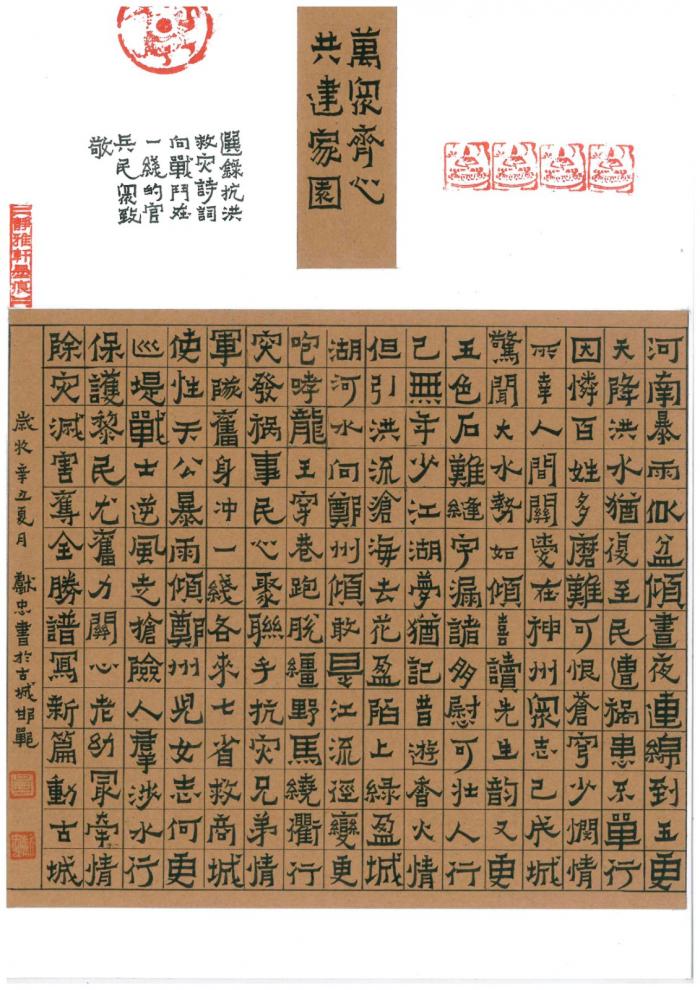 萬眾齊心
共建家園
選錄抗洪
救灾詩詞
向戰鬥在
一綫的官
兵民眾致
敬
靜雅軒墨痕
河南暴雨似盆傾晝夜連綿到五更
天降洪水猶復至民遭禍患不單行
因憐百姓多磨難可恨蒼穹少憫情
所幸人間關愛在神州眾志已成城
驚聞大水勢如傾喜讀先生韵又更
五色石難縫宇漏諸多慰可壮人行
己無年少江湖夢猶記昔遊香火情
但引洪流滄海去花盈陌上綠盈城
湖河水向鄭州傾敢是江流徑變更
咆哮龍王穿巷跑脫繮野馬繞衢行
突發禍事民心聚聯手抗灾兄弟情
軍隊奮身冲一綫各来七省救商城
使性天公暴雨傾鄭州児女志何更
巡堤戰士逆風走搶險人羣涉水行
保護黎民尤奮力關心老幼最牽情
除灾減害奪全勝譜寫新篇動古城
歲次辛丑夏月 獻忠書於古城邯鄲